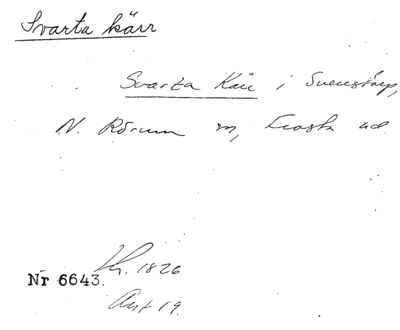 Svarta kärr
Svarta Kärr i Svenstorp,
N. Rörum sn, Frosta hd.
Nr 6643. Kr. 1826
Akt 19.